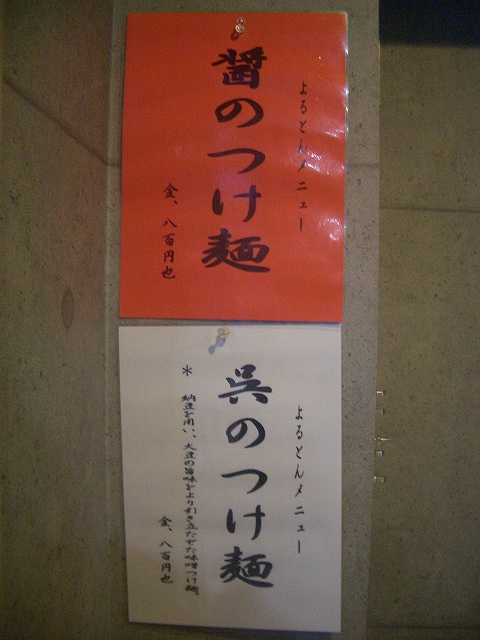 よるとんメニュー
醤のつけ麺
金、八百円也
よるとんメニュー
呉のつけ麺
＊ 納豆を用い、大豆の旨味をより引き立たせた味噌つけ麺。
金、八百円也